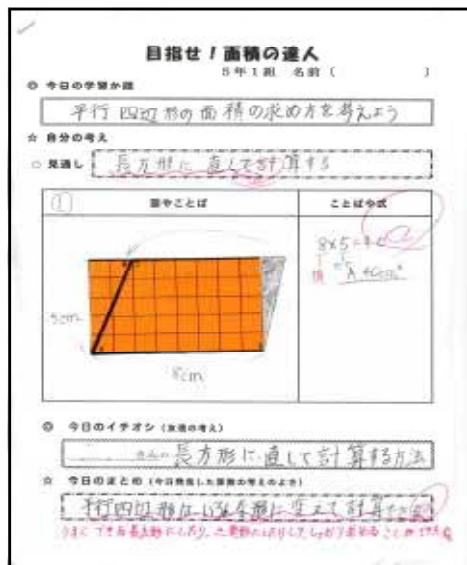 目指せ！面積の達人
5年1組 名前（ ）
◎ 今日の学習か題
平行四辺形の面積の求め方を考えよう
☆ 自分の考え
○ 見通し 長方形に直して計算する
① 図やことば ことばや式
8×5=40
横
A 40cm²
5cm
8cm
◎ 今日のイチオシ（友達の考え）
さんの 長方形に直して計算する方法
☆ 今日のまとめ（今日発見した算数の考えのよさ）
平行四辺形はいろな形に変えて計算